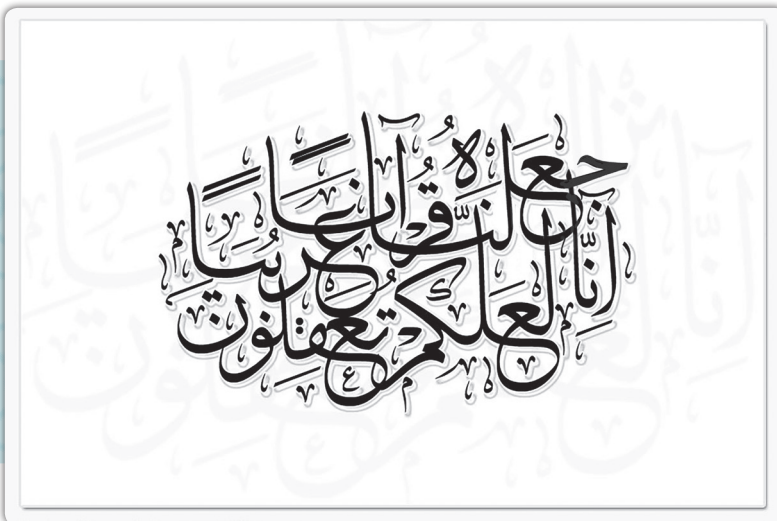 إنَّا جعلنه قُرآناً عربياً
لعلكم تعقلون